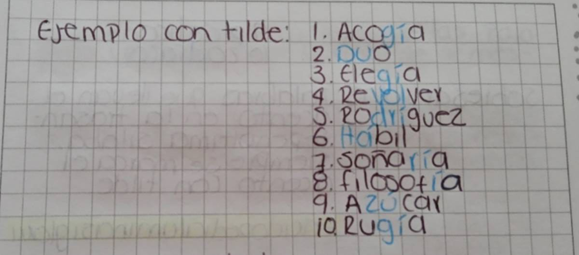 Ejemplo con tilde: 1. Acogía
2. DUO
3. Elegía
4. Revolver
5. Rodríguez
6. Hábil
7. Soñaría
8. filosofía
9. Azúcar
10. Rugía